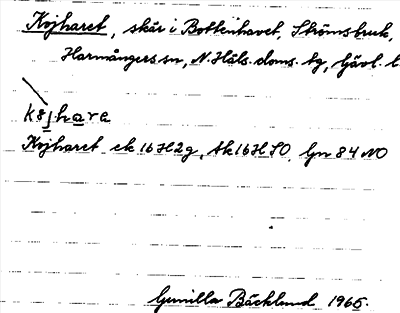 Kojharet, skär i Bottenhavet, Strömsbruk,
Harmångers sn, N. Häls. doms. tg, Gävl. l
kòjhare
Kojharet ek 16H2g, tk 16H SO, Gn 84 NO
Gunilla Bäcklund 1965.